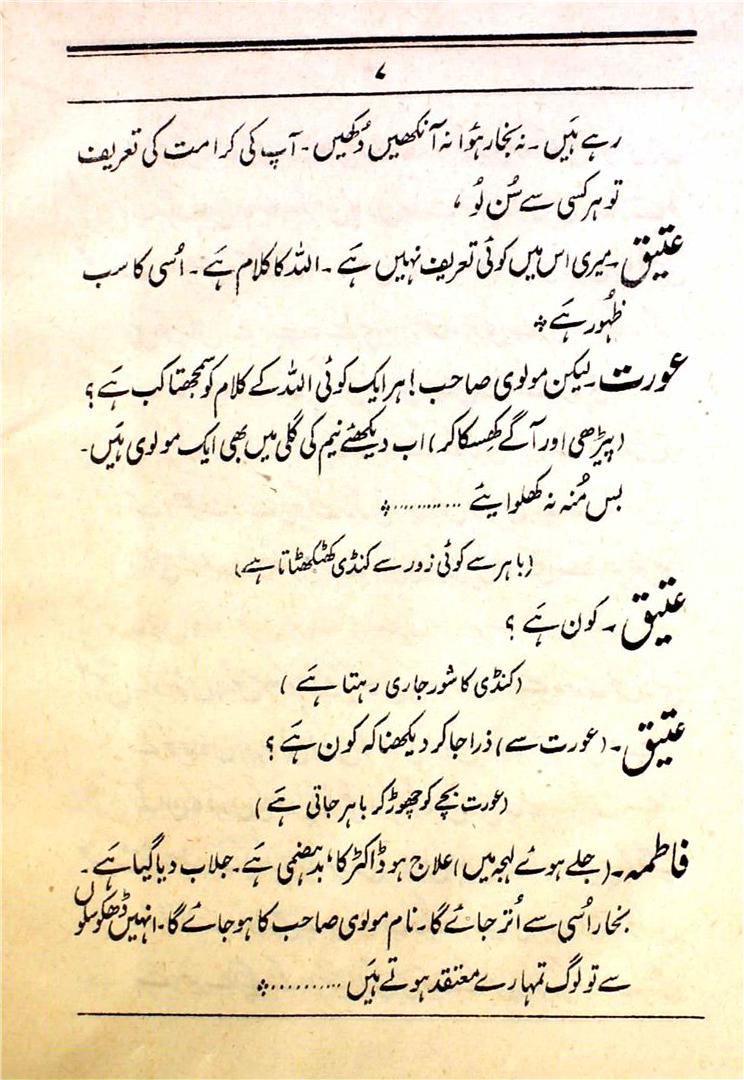 ۷
رہے ہَیں ۔ نہ بخار ہؤا نہ آنکھیں دُکھیں ۔ آپ کی کرامت کی تعریف
تو ہر کسی سے سُن لُو ،
عتیق ۔ میری اس میں کوئی تعریف نہیں ہَے ۔ اللہ کا کلام ہَے ۔ اُسی کا سب
ظہُور ہَے ٭
عورت ۔ لیکن مولوی صاحب ! ہر ایک کوئی اللہ کے کلام کو سمجھتا کب ہَے ؟
(پیڑھی اور آگے کھِسکا کر) اب دیکھئے نیم کی گلی میں بھی ایک مولوی ہَیں ۔
بس مُنہ نہ کھلوایئے ..........٭
(باہر سے کوئی زور سے کنڈی کھٹکھٹاتا ہَے)
عتیق ۔ کون ہَے ؟
(کنڈی کا شور جاری رہتا ہَے )
عتیق ۔ (عورت سے) ذرا جا کر دیکھنا کہ کون ہَے ؟
(عورت بچے کو چھوڑ کر باہر جاتی ہَے )
فاطمہ ۔ (جلے ہوئے لہجہ میں) علاج ہو ڈاکٹر کا، بدہضمی ہَے ۔ جلاب دیا گیا ہَے ۔
بخار اُسی سے اُتر جائے گا ۔ نام مولوی صاحب کا ہو جائے گا ۔ انہیں ڈھکوسلوں
سے تو لوگ تمہارے معتقد ہوتے ہَیں ..........٭